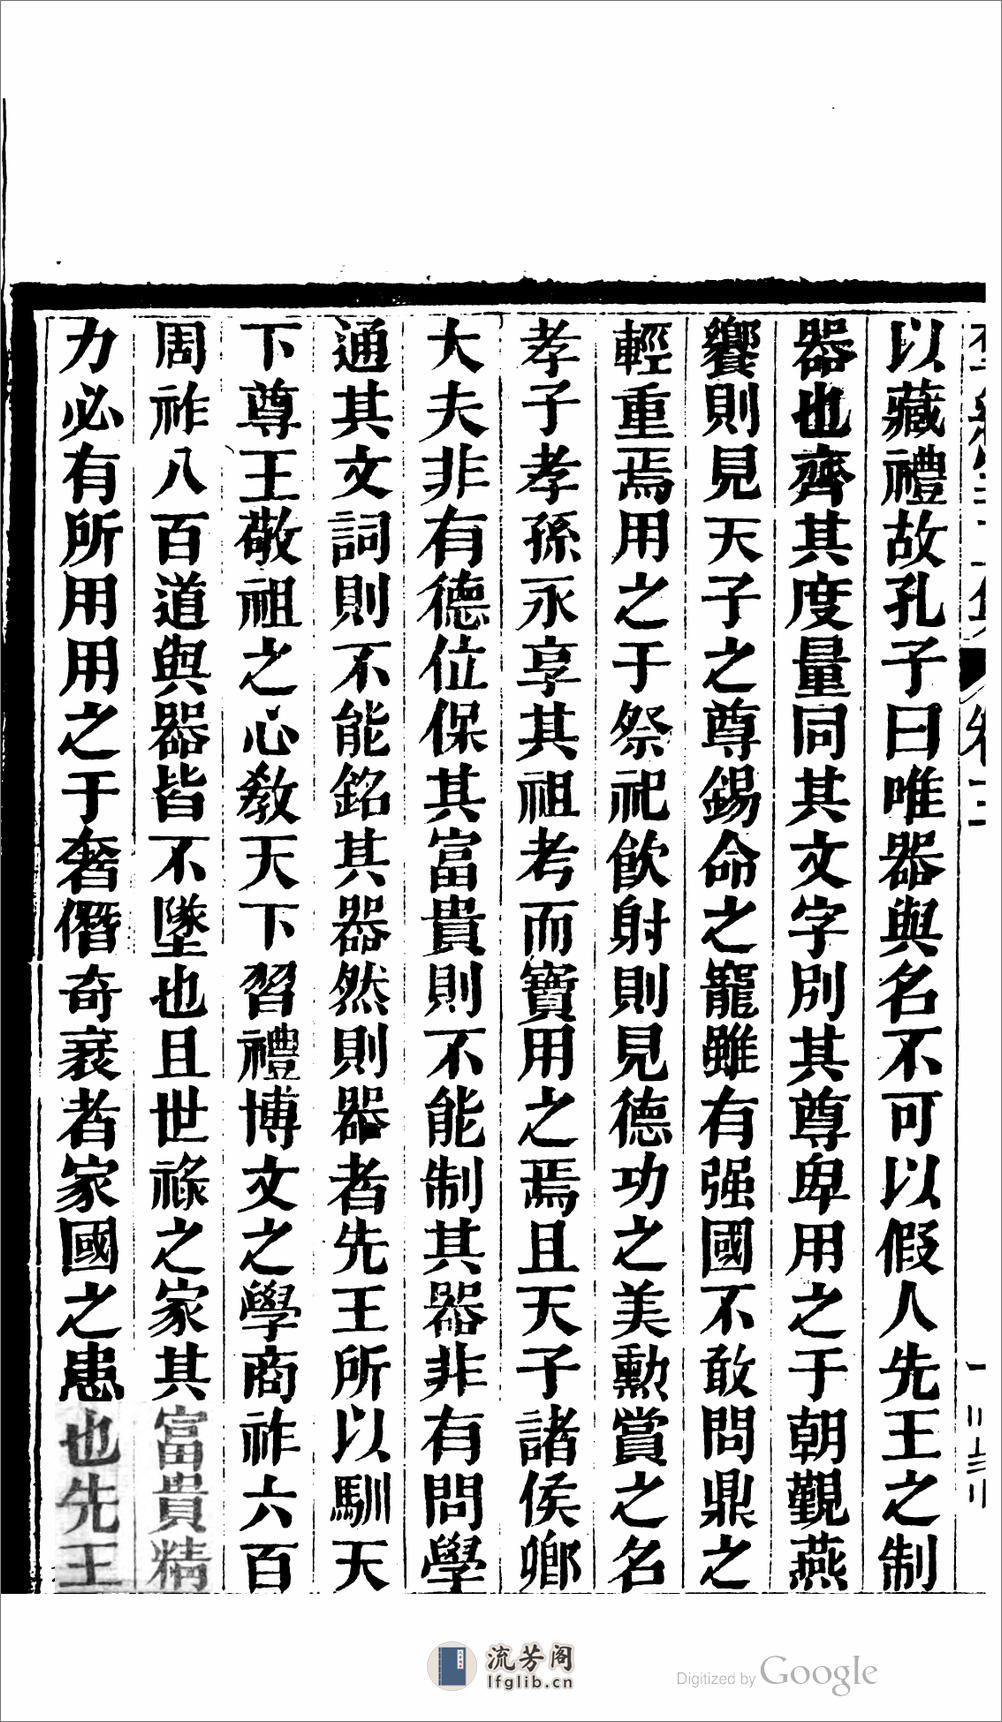 以藏禮故孔子曰唯器與名不可以假人先王之制
器也齊其度量同其文字別其尊卑用之于朝覲燕
饗則見天子之尊錫命之寵雖有强國不敢問鼎之
輕重焉用之于祭祀飲射則見德功之美勳賞之名
孝子孝孫永享其祖考而寶用之焉且天子諸侯卿
大夫非有德位保其富貴則不能制其器非有問學
通其文詞則不能銘其器然則器者先王所以馴天
下尊王敬祖之心教天下習禮博文之學商祚六百
周祚八百道與器皆不墜也且世祿之家其富貴精
力必有所用用之于奢僭奇衺者家國之患也先王
流芳阁
lfglib.cn
Digitized by Google